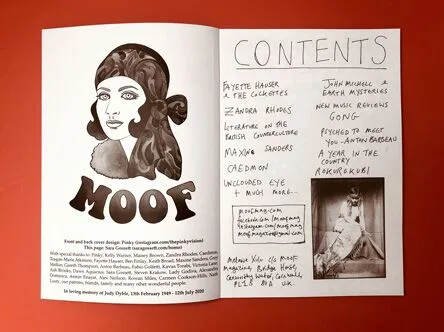 MOOF
Front and back cover design: Pinky (instagram.com/thepinkyvision)
This page: Sara Gossett (saragossett.com/home)
With special thanks to Pinky, Kelly Warner, Maisey Brown, Zandra Rhodes, Caedmon,
Teagan-Marie Atkinson, Fayette Hauser, Ben Finlay, Keith Broad, Maxine Sanders, Grey
Malkin, Gareth Thompson, Anton Barbeau, Fabio Golfetti, Victoria Lane,
Ash Brooks, Dawn Aquarius, Sara Gossett, Steven Krakow, Lady Godiva, Alexandra
Dominica, Amira Enayat, Alex Neilson, Rowan Miles, Carmen Cookson-Hills, Nath
Lusty, our patrons, friends, family and many other wonderful people.
In loving memory of Judy Dyble, 13th February 1949 - 12th July 2020
CONTENTS
FAYETTE HAUSER
& THE COCKETTES
ZANDRA RHODES
LITERATURE ON THE
BRITISH COUNTERCULTURE
MAXINE SANDERS
CAEDMON
UNCLOUDED EYE
+ MUCH MORE...
JOHN MICHELL &
EARTH MYSTERIES
NEW MUSIC REVIEWS
GONG
PSYCHED TO MEET
YOU - ANTON BARBEAU
A YEAR IN THE
COUNTRY
ROKUROKUBI
moofmag.com
facebook.com/moofmag
instagram.com/moofmag
moofmagazine@gmail.com
Melanie c/o Moof
Magazine, Bridge House,
Water, Cornwall,
UK.